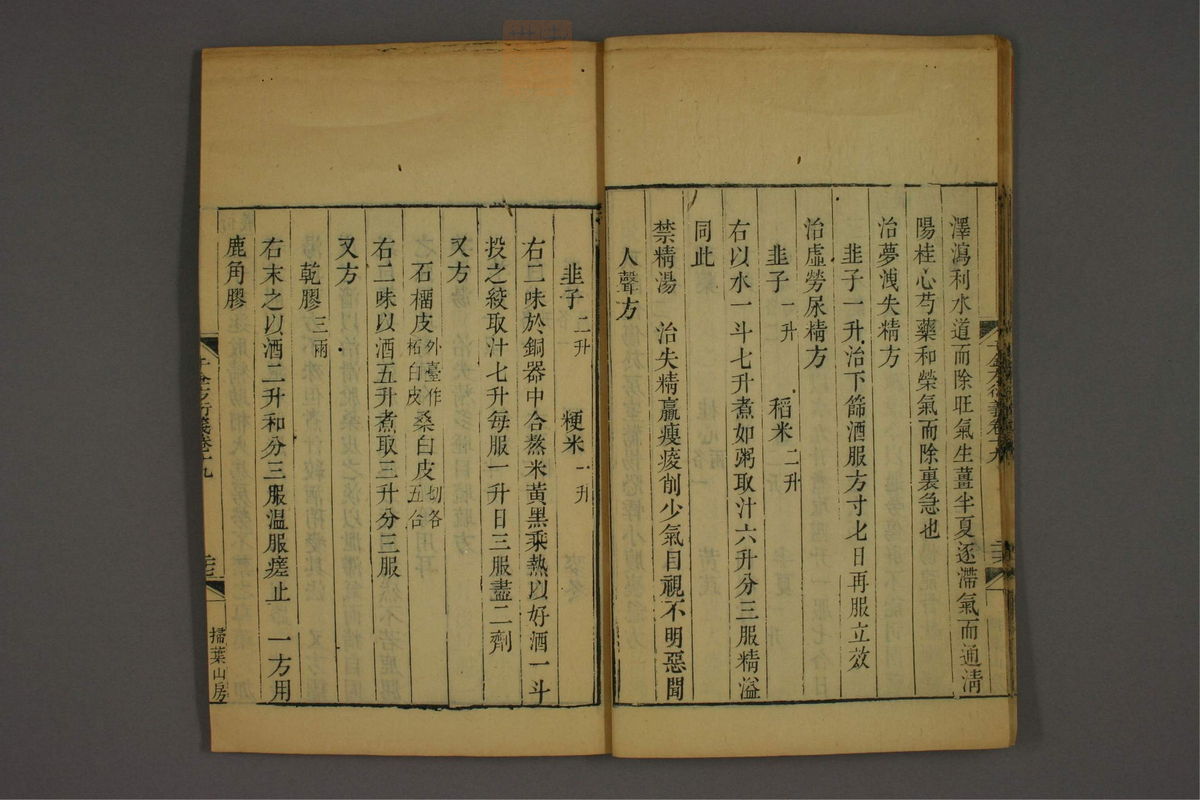 澤瀉利水道而除旺氣生薑半夏逐滯氣而通淸
陽桂心芍藥和榮氣而除裏急也
治夢洩失精方
韭子一升治下篩酒服方寸七日再服立效
治虛勞尿精方
韭子一升 稻米二升
右以水一斗七升煮如粥取汁六升分三服精溢
同此
禁精湯 治失精羸瘦痠削少氣目視不明惡聞
人聲方
韭子二升 粳米一升
右二味於銅器中合熬米黃黑乘熱以好酒一斗
投之絞取汁七升每服一升日三服盡二劑
又方
石榴皮外臺作柘白皮桑白皮切各五合
右二味以酒五升煮取三升分三服
又方
乾膠三兩
右末之以酒二升和分三服溫服瘥止 一方用
鹿角膠
千金方衍義卷十九
掃葉山房